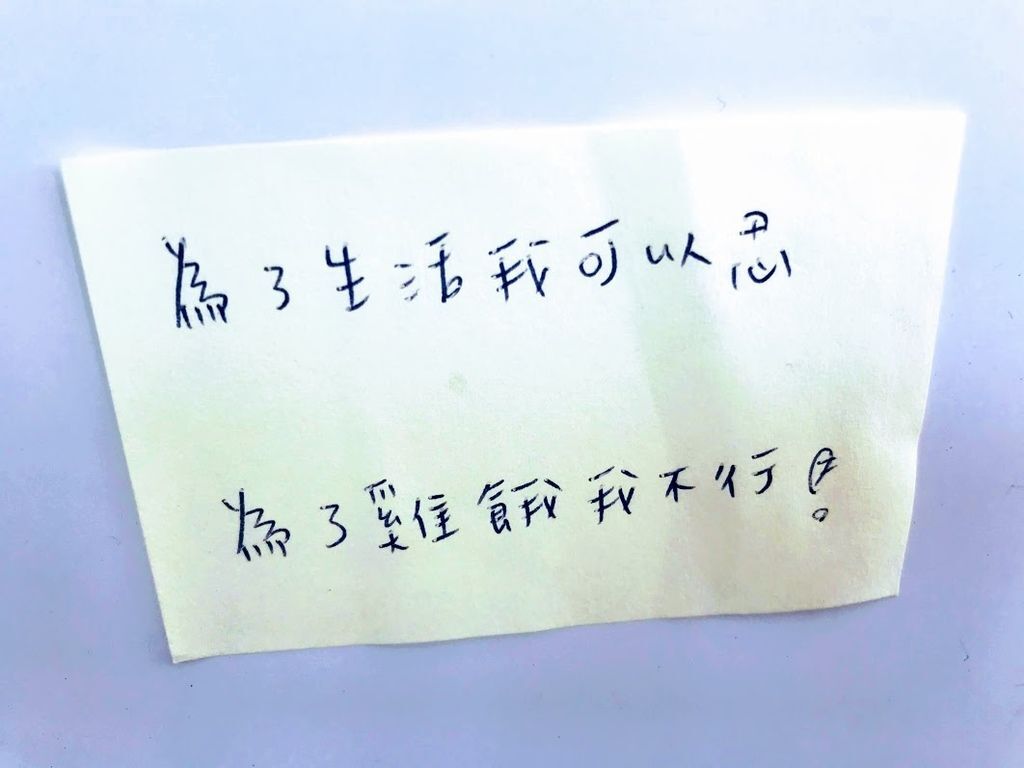 為了生活我可以忍
為了雞餓我不行!